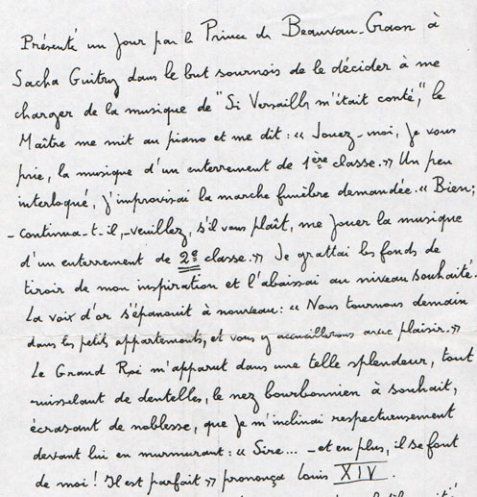 Présenté un jour par le Prince de Beauvau-Craon à
Sacha Guitry dans le but sournois de le décider à me
charger de la musique de "Si Versailles m'était conté," le
Maître me mit au piano et me dit : « Jouez-moi, je vous
prie, la musique d'un enterrement de 1ère classe. » Un peu
interloqué, j'improvisai la marche funèbre demandée. « Bien;
- continua-t-il, - veuillez, s'il vous plaît, me jouer la musique
d'un enterrement de 2e classe. » Je grattai les fonds de
tiroir de mon inspiration et l'abaissai au niveau souhaité.
La voix d'or s'épanouit à nouveau : « Nous tournons demain
dans les petits appartements, et vous y accueillerons avec plaisir. »
Le Grand Roi m'apparut dans une telle splendeur, tout
ruisselant de dentelles, le nez bourbonnien à souhait,
écrasant de noblesse, que je m'inclinai respectueusement
devant lui en murmurant : « Sire... - et en plus, il se fout
de moi ! Il est parfait » prononça Louis XIV.